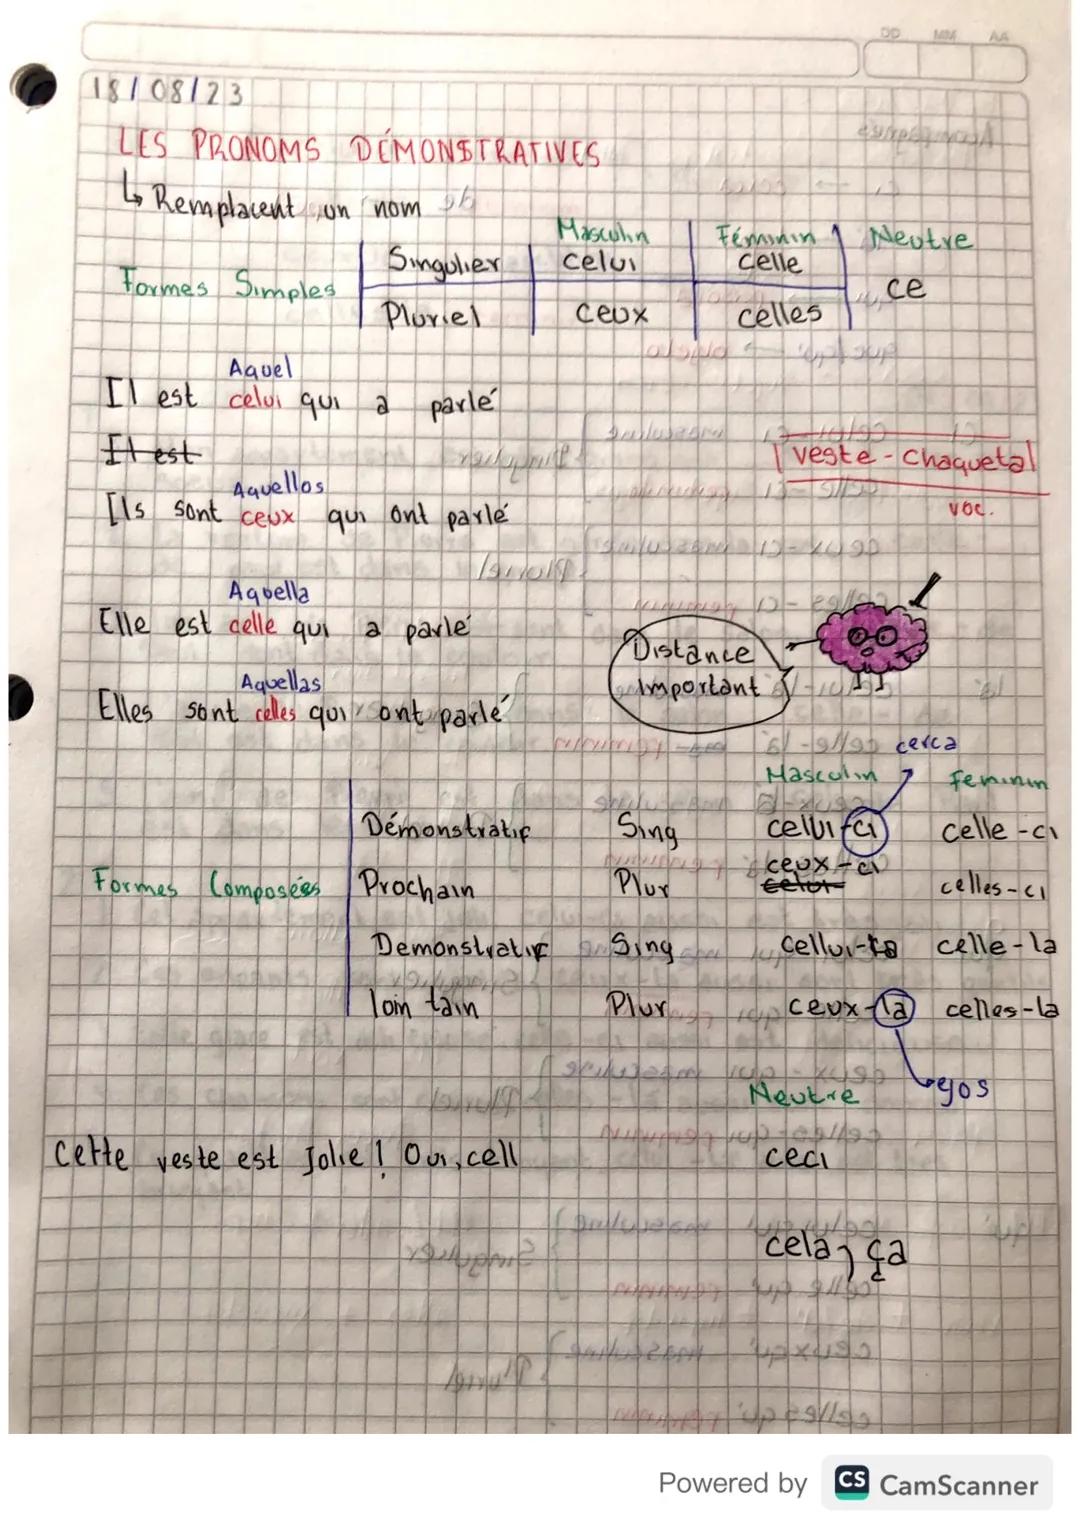 DD MM AA
18/08/23
LES PRONOMS DÉMONSTRATIVES
↳ Remplacent un nom
Masculin Féminin Neutre
Singulier celui celle
Formes Simples ce
Pluriel ceux celles
Aquel
Il est celui qui a parlé
Il est
veste - chaqueta
voc.
Aquellos
Ils sont ceux qui ont parlé
Aquella
Elle est celle qui a parlé
Distance
important
Aquellas
Elles sont celles qui ont parlé
cerca
Masculin Feminin
Démonstratif Sing celui-ci celle-ci
ceux-ci
Formes Composées Prochain Plur celui- celles-ci
Demonstratif Sing cellui-la celle-la
loin tain Plur ceux-la celles-la
ejos
Neutre
Cette veste est Jolie! Oui, cell ceci
cela, ça
Powered by CS CamScanner